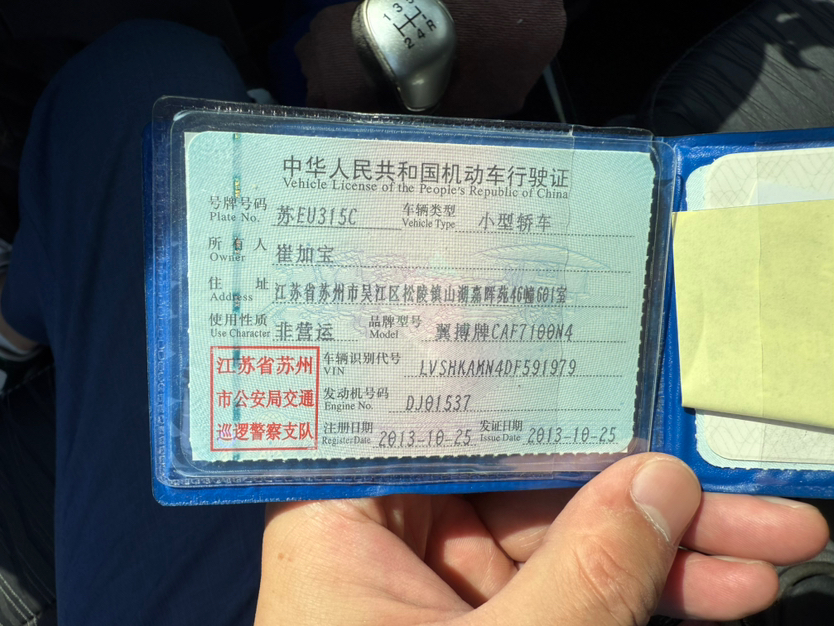 1 3 5
2 4 R
中华人民共和国机动车行驶证
Vehicle License of the People's Republic of China
号牌号码 苏EU315C 车辆类型 小型轿车
Plate No. Vehicle Type
所有人 崔加宝
Owner
住址 江苏省苏州市吴江区松陵镇山湖嘉晖苑46幢601室
Address
使用性质 非营运 品牌型号 翼搏牌CAF7100N4
Use Character Model
江苏省苏州 车辆识别代号 LVSHKAMN4DF591979
VIN
市公安局交通 发动机号码 DJ01537
Engine No.
巡逻警察支队 注册日期 2013-10-25 发证日期 2013-10-25
Register Date Issue Date